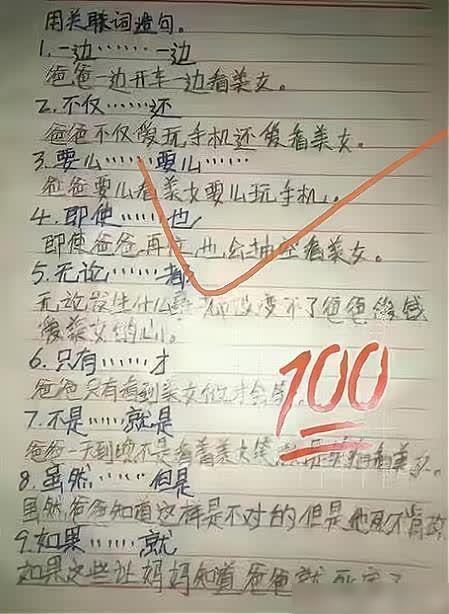 用关联词造句。
1.一边……一边
爸爸一边开车一边看美女。
2.不仅……还
爸爸不仅爱玩手机还爱看美女。
3.要么……要么……
爸爸要么看美女要么玩手机。
4.即使……也
即使爸爸再 也会抽 看美女。
5.无论……都
无论发生什么 都改变不了爸爸
爱美女的心。
6.只有……才
爸爸只有看到美女 才会
7.不是……就是
爸爸一天到晚不是看着美女笑就是 看美女。
8.虽然……但是
虽然爸爸知道这样是不对的但是他 不肯改
9.如果……就
如果这些让妈妈知道爸爸就死定了
100